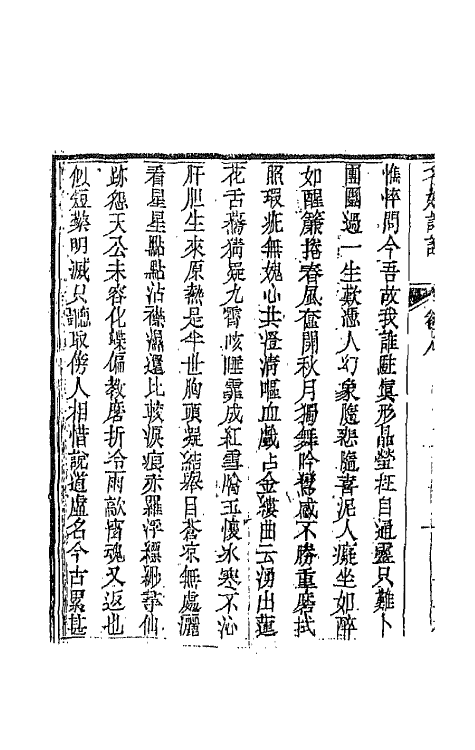 憔悴問今吾故我誰駐眞形晶瑩在自通靈只難卜
團圞過一生歎憑人幻象隨悲隨喜泥人癡坐如醉
如醒簾捲春風奩開秋月獨舞吟鸞感不勝重磨拭
照瑕疵無媿心共燈清嘔血戲占金縷曲云湧出蓮
花舌驀猜疑九霄咳唾霏成紅雪腸玉懷冰寒不沁
肝胆生來原熱是半世胸頭凝結舉目蒼凉無處灑
看星星點點沾襟濕還比較淚痕赤羅浮縹緲尋仙
跡怨天公未容化蝶偏教磨折冷雨敲窗魂又返也
似短檠明滅只聽取傍人相惜說道虛名今古累甚